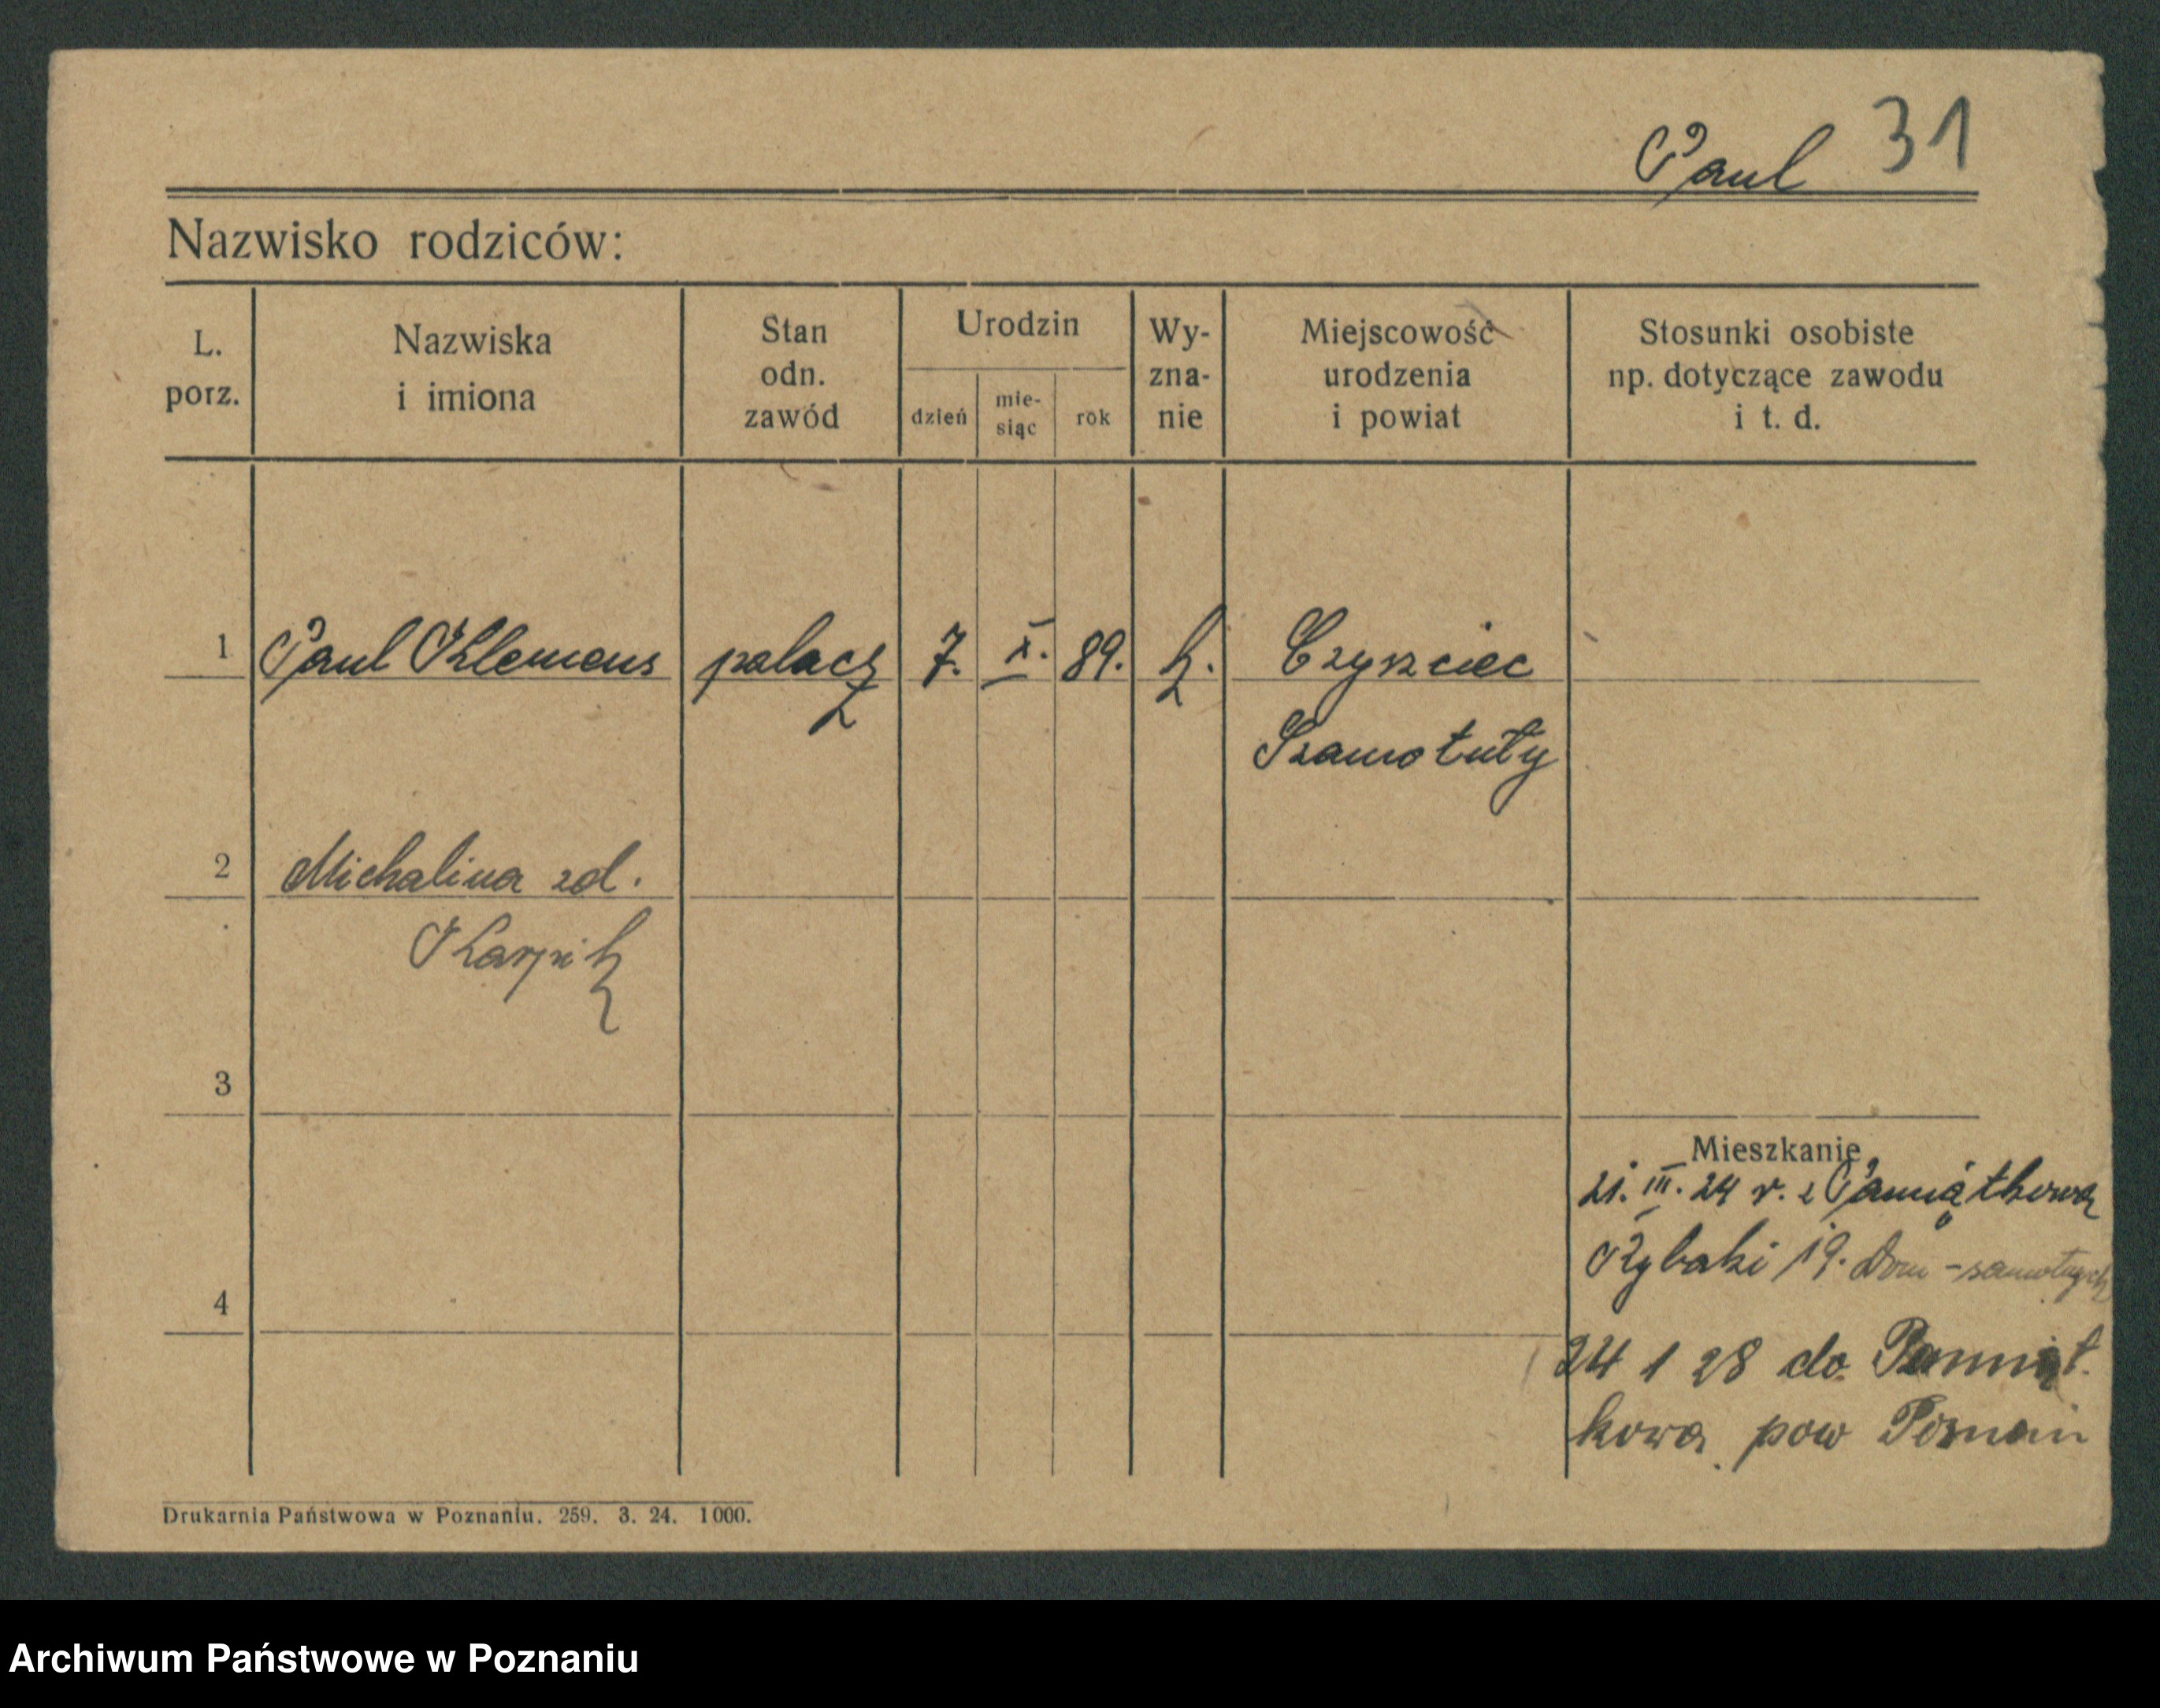 31
Paul
Nazwisko rodziców:
L. porz.
Nazwiska i imiona
Stan odn. zawód
Urodzin
dzień
mie-siąc
rok
Wy-zna-nie
Miejscowość urodzenia i powiat
Stosunki osobiste np. dotyczące zawodu i t. d.
1 Paul Klemens palacz 7. X. 89. k. Czyściec
Szamotuły
2 Michalina zd.
Karpik
3
Mieszkanie
21. III. 24 r. z Pamiątkowa
Rybaki 19. Dom - samotnych
4
24 1 28 do Pamiąt.
kowa pow Poznań
Drukarnia Państwowa w Poznaniu. 259. 3. 24. 1000.
Archiwum Państwowe w Poznaniu